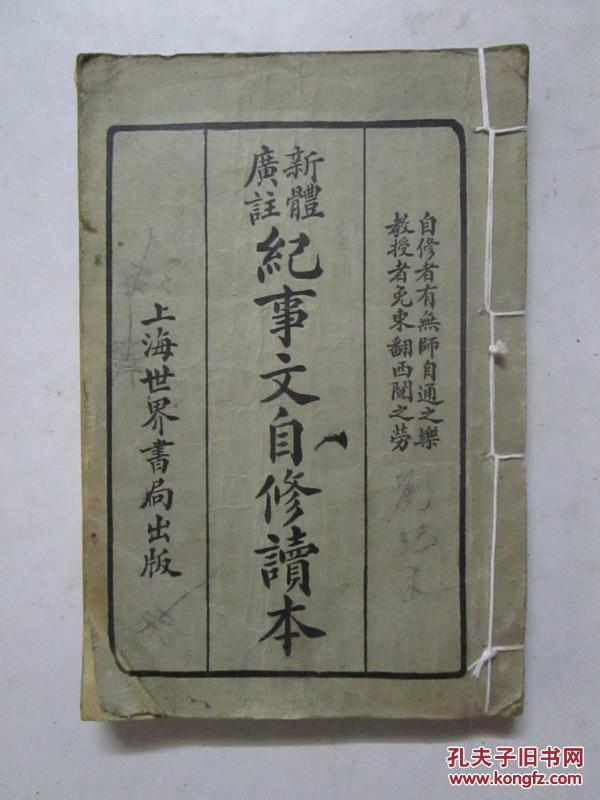 自修者有無師自通之樂
教授者免東翻西閱之勞
新體
廣註
紀事文自修讀本
上海世界書局出版
孔夫子旧书网
www.kongfz.com